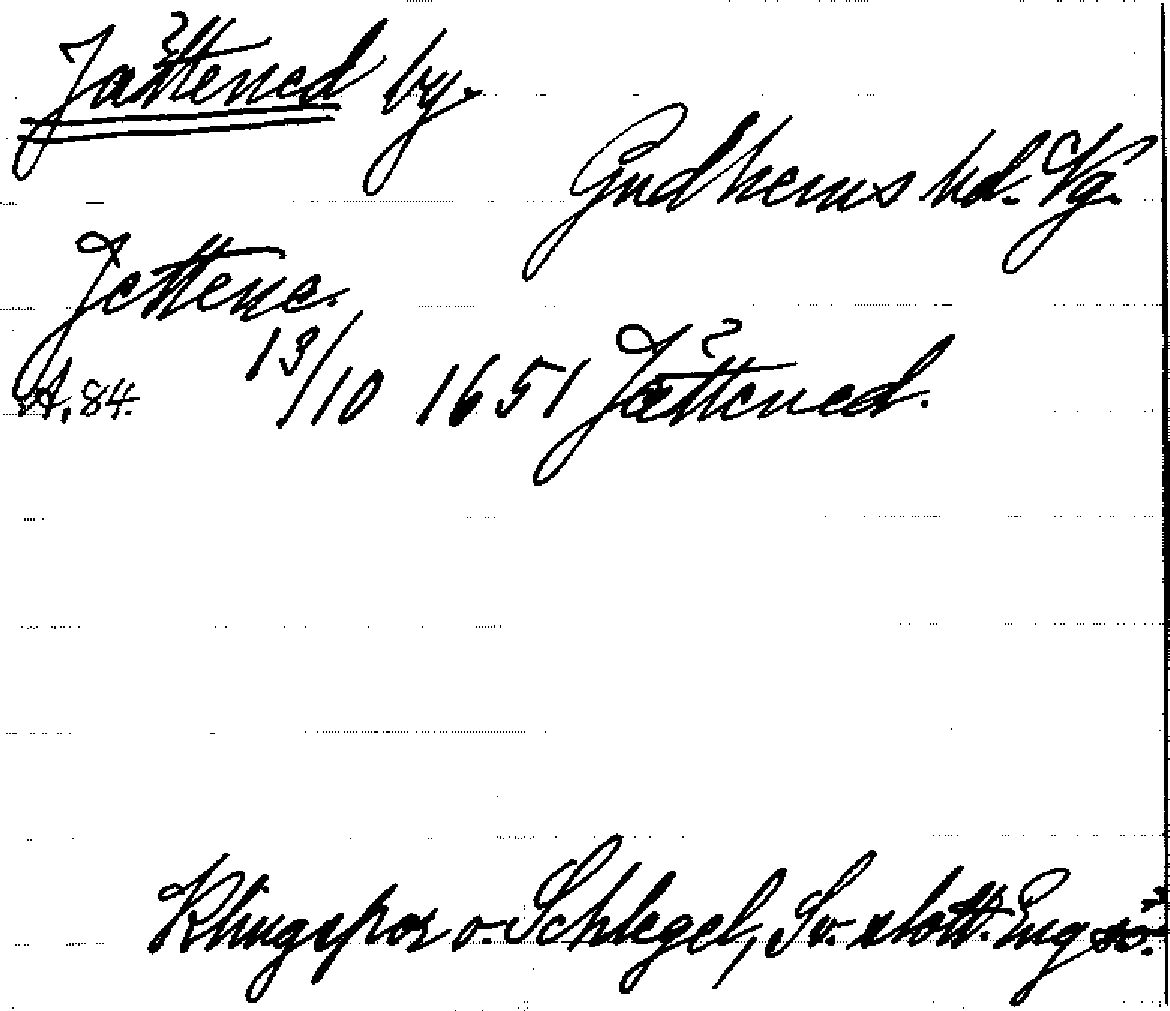 Jättened by.
Gudhems hd. Vg.
Jettene.
A. 84. 13/10 1651 Jättened.
Klingspor o. Schlegel, Sv. slott. Engsö.